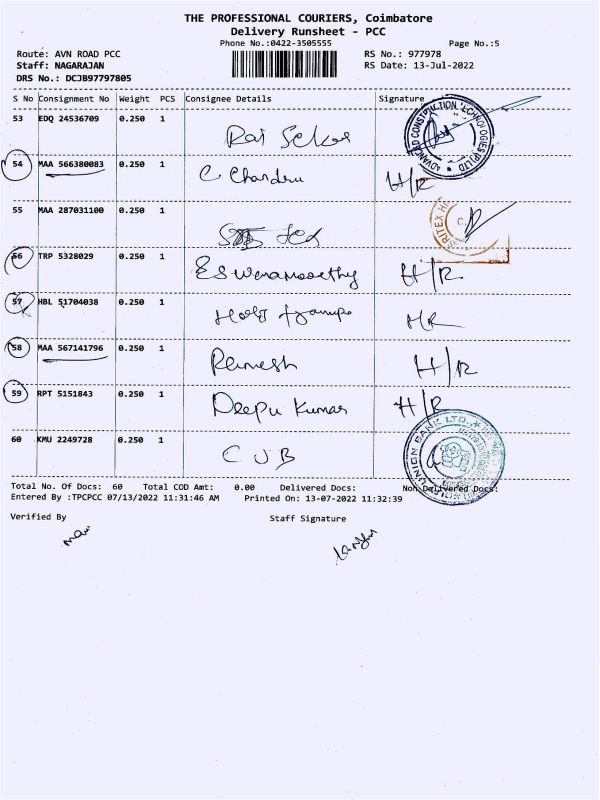 THE PROFESSIONAL COURIERS, Coimbatore
Delivery Runsheet - PCC
Phone No.:0422-3505555 Page No.:5
Route: AVN ROAD PCC RS No.: 977978
Staff: NAGARAJAN RS Date: 13-Jul-2022
DRS No.: DCJB97797805
S No Consignment No Weight PCS Consignee Details Signature
53 EDQ 24536709 0.250 1
ADVANCED CONSTRUCTION TECHNOLOGIES (P) LTD
54 MAA 566380083 0.250 1 C Chandru H/R
55 MAA 287031100 0.250 1
56 TRP 5328029 0.250 1 Eswaramoorthy H/R
57 HBL 51704038 0.250 1 HR
58 MAA 567141796 0.250 1 Ramesh H/R
59 RPT 5151843 0.250 1 Deepu Kumar H/R
60 KMU 2249728 0.250 1 CUB
UNION BANK LTD.
Total No. Of Docs: 60 Total COD Amt: 0.00 Delivered Docs: Non Delivered Docs:
Entered By :TPCPCC 07/13/2022 11:31:46 AM Printed On: 13-07-2022 11:32:39
Verified By Staff Signature